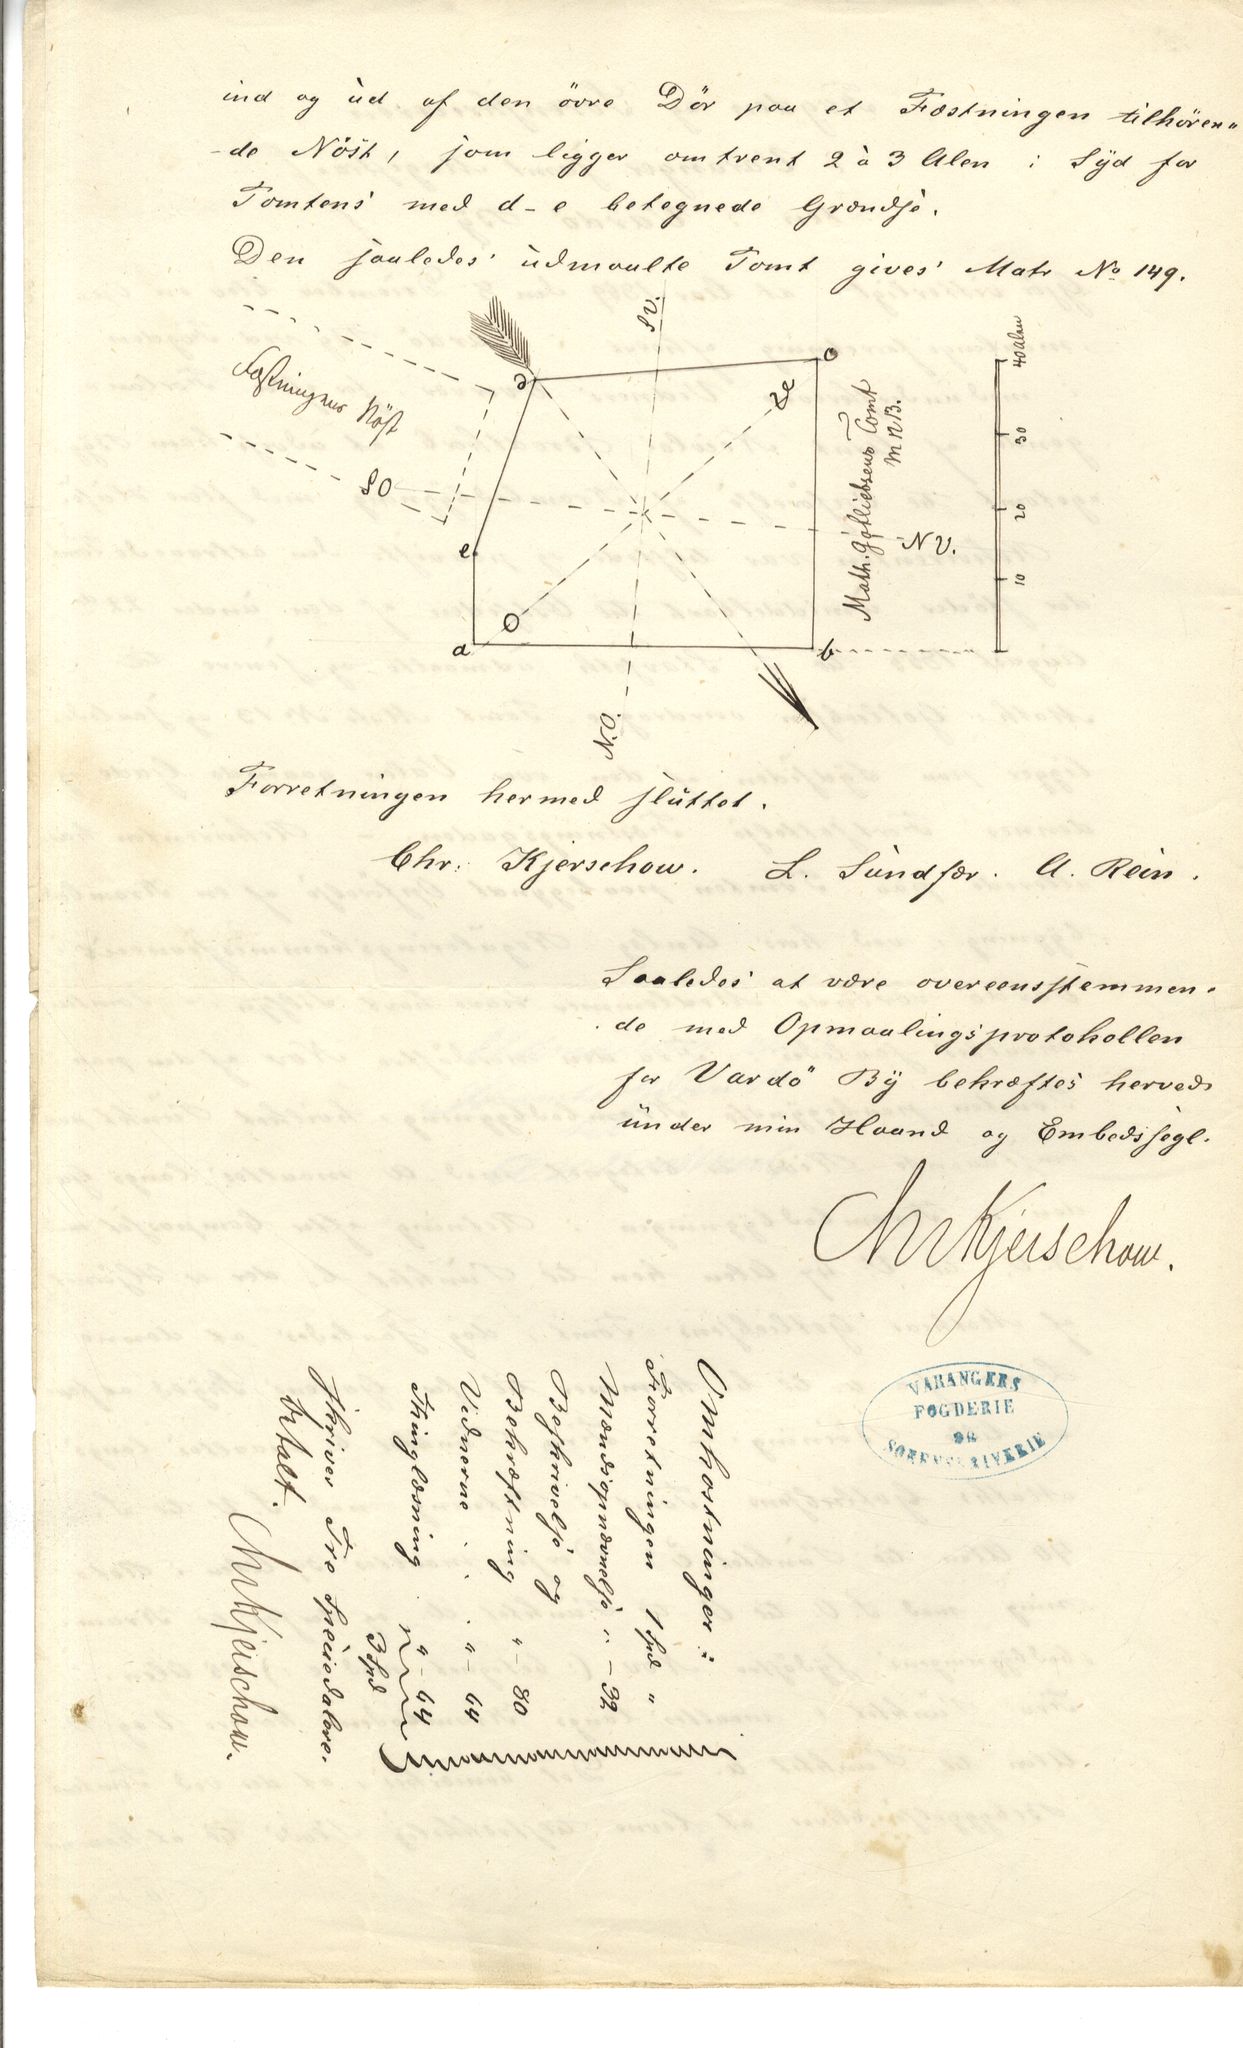 ind og ud af den övre Dör paa et Fæstningen tilhören„
-de Nöst, som ligger omtrent 2 à 3 Alen i Syd for
Tomtens med d-e betegnede Grændse.
Den saaledes udmaalte Tomt gives Matr No 149.
S V.
d
c
V
40 Alen
Fæstningens Nöst
Math. Gotliebsens Tomt
M N 13.
30
S O
20
N V.
e
10
O
a
b
N.O.
Forretningen hermed sluttet.
Chr. Kjerschow. L. Sundfær. A. Rein.
Saaledes at være overeensstemmen-
de med Opmaalingsprotokollen
for Vardö By bekræftes herved
under min Haand og Embedssegl.
Chr Kjerschow.
VARANGERS
FOGDERIE
OG
SORENSKRIVERIE
Omkostninger:
Forretningen 1 Spd "
Mændsopnævnelse " - 32
Beskrivelse og
Bekræftning " - 80
Vidnerne . . " - 64
Thinglæsning . " - 64
3 Spd
skriver Tre Speciedalere.
betalt.
Chr Kjerschow.